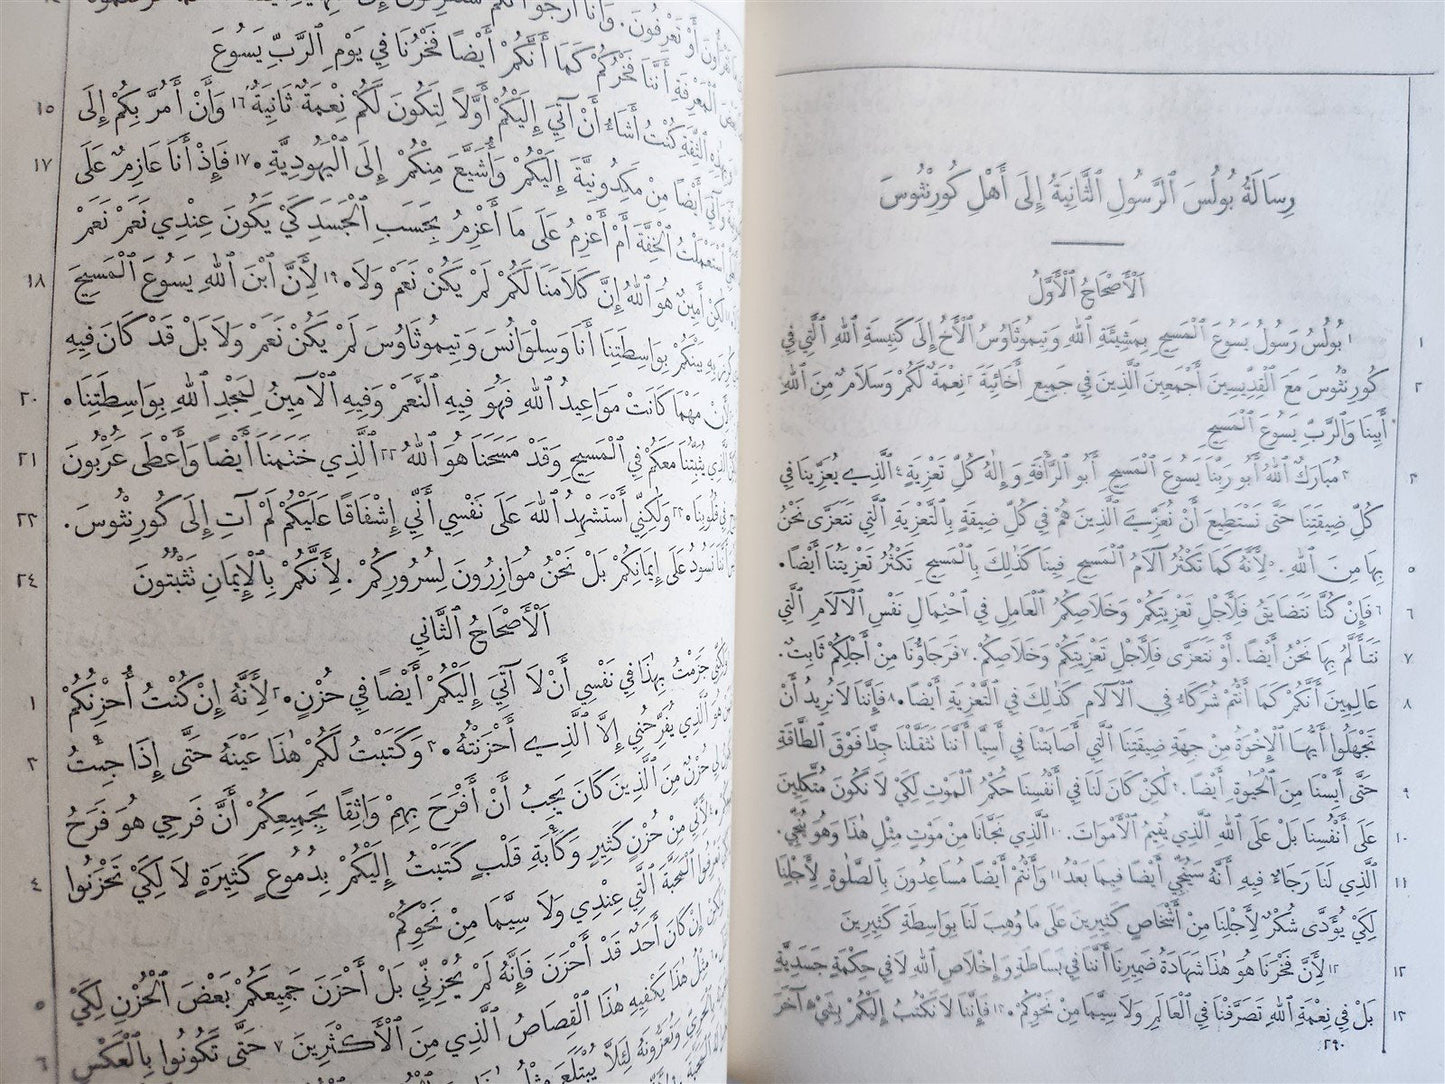 رِسَالَةُ بُولُسَ ٱلرَّسُولِ ٱلثَّانِيَةُ إِلَى أَهْلِ كُورِنْثُوسَ
اَلْأَصْحَاحُ ٱلْأَوَّلُ
١ ١ بُولُسُ رَسُولُ يَسُوعَ ٱلْمَسِيحِ بِمَشِيئَةِ ٱللهِ وَتِيمُوثَاوُسُ ٱلْأَخُ إِلَى كَنِيسَةِ ٱللهِ ٱلَّتِي فِي
٢ كُورِنْثُوسَ مَعَ ٱلْقِدِّيسِينَ أَجْمَعِينَ ٱلَّذِينَ فِي جَمِيعِ أَخَائِيَةَ ٢ نِعْمَةٌ لَكُمْ وَسَلَامٌ مِنَ ٱللهِ
أَبِينَا وَٱلرَّبِّ يَسُوعَ ٱلْمَسِيحِ
٣ ٣ مُبَارَكٌ ٱللهُ أَبُو رَبِّنَا يَسُوعَ ٱلْمَسِيحِ أَبُو ٱلرَّأْفَةِ وَإِلٰهُ كُلِّ تَعْزِيَةٍ ٤ ٱلَّذِي يُعَزِّينَا فِي
كُلِّ ضِيقَتِنَا حَتَّى نَسْتَطِيعَ أَنْ نُعَزِّيَ ٱلَّذِينَ هُمْ فِي كُلِّ ضِيقَةٍ بِٱلتَّعْزِيَةِ ٱلَّتِي نَتَعَزَّى نَحْنُ
٥ بِهَا مِنَ ٱللهِ. ٥ لِأَنَّهُ كَمَا تَكْثُرُ آلَامُ ٱلْمَسِيحِ فِينَا كَذٰلِكَ بِٱلْمَسِيحِ تَكْثُرُ تَعْزِيَتُنَا أَيْضًا.
٦ ٦ فَإِنْ كُنَّا نَتَضَايَقُ فَلِأَجْلِ تَعْزِيَتِكُمْ وَخَلَاصِكُمُ ٱلْعَامِلِ فِي ٱحْتِمَالِ نَفْسِ ٱلْآلَامِ ٱلَّتِي
٧ نَتَأَلَّمُ بِهَا نَحْنُ أَيْضًا. أَوْ نَتَعَزَّى فَلِأَجْلِ تَعْزِيَتِكُمْ وَخَلَاصِكُمْ. ٧ فَرَجَاؤُنَا مِنْ أَجْلِكُمْ ثَابِتٌ.
٨ عَالِمِينَ أَنَّكُمْ كَمَا أَنْتُمْ شُرَكَاءُ فِي ٱلْآلَامِ كَذٰلِكَ فِي ٱلتَّعْزِيَةِ أَيْضًا. ٨ فَإِنَّنَا لَا نُرِيدُ أَنْ
تَجْهَلُوا أَيُّهَا ٱلْإِخْوَةُ مِنْ جِهَةِ ضِيقَتِنَا ٱلَّتِي أَصَابَتْنَا فِي أَسِيَّا أَنَّنَا تَثَقَّلْنَا جِدًّا فَوْقَ ٱلطَّاقَةِ
٩ حَتَّى أَيِسْنَا مِنَ ٱلْحَيٰوةِ أَيْضًا. ٩ لٰكِنْ كَانَ لَنَا فِي أَنْفُسِنَا حُكْمُ ٱلْمَوْتِ لِكَيْ لَا نَكُونَ مُتَّكِلِينَ
١٠ عَلَى أَنْفُسِنَا بَلْ عَلَى ٱللهِ ٱلَّذِي يُقِيمُ ٱلْأَمْوَاتَ. ١٠ ٱلَّذِي نَجَّانَا مِنْ مَوْتٍ مِثْلِ هٰذَا وَهُوَ يُنَجِّي.
١١ ٱلَّذِي لَنَا رَجَاءٌ فِيهِ أَنَّهُ سَيُنَجِّي أَيْضًا فِيمَا بَعْدُ ١١ وَأَنْتُمْ أَيْضًا مُسَاعِدُونَ بِٱلصَّلٰوةِ لِأَجْلِنَا
لِكَيْ يُؤَدَّى شُكْرٌ لِأَجْلِنَا مِنْ أَشْخَاصٍ كَثِيرِينَ عَلَى مَا وُهِبَ لَنَا بِوَاسِطَةِ كَثِيرِينَ
١٢ ١٢ لِأَنَّ فَخْرَنَا هُوَ هٰذَا شَهَادَةُ ضَمِيرِنَا أَنَّنَا فِي بَسَاطَةٍ وَإِخْلَاصِ ٱللهِ لَا فِي حِكْمَةٍ جَسَدِيَّةٍ
١٣ بَلْ فِي نِعْمَةِ ٱللهِ تَصَرَّفْنَا فِي ٱلْعَالَمِ وَلَا سِيَّمَا مِنْ نَحْوِكُمْ. ١٣ فَإِنَّنَا لَا نَكْتُبُ إِلَيْكُمْ بِشَيْءٍ آخَرَ
٢٩٠
تَقْرَأُونَ أَوْ تَعْرِفُونَ. وَأَنَا أَرْجُو
ٱلْمَعْرِفَةِ أَنَّنَا فَخْرُكُمْ كَمَا أَنَّكُمْ أَيْضًا فَخْرُنَا فِي يَوْمِ ٱلرَّبِّ يَسُوعَ
ٱلثِّقَةِ كُنْتُ أَشَاءُ أَنْ آتِيَ إِلَيْكُمْ أَوَّلًا لِتَكُونَ لَكُمْ نِعْمَةٌ ثَانِيَةٌ ١٦ وَأَنْ أَمُرَّ بِكُمْ إِلَى ١٥
وَآتِيَ أَيْضًا مِنْ مَكِدُونِيَّةَ إِلَيْكُمْ وَأُشَيَّعَ مِنْكُمْ إِلَى ٱلْيَهُودِيَّةِ. ١٧ فَإِذْ أَنَا عَازِمٌ عَلَى ١٧
ٱسْتَعْمَلْتُ ٱلْخِفَّةَ أَمْ أَعْزِمُ عَلَى مَا أَعْزِمُ بِحَسَبِ ٱلْجَسَدِ كَيْ يَكُونَ عِنْدِي نَعَمْ نَعَمْ
لٰكِنْ أَمِينٌ هُوَ ٱللهُ إِنَّ كَلَامَنَا لَكُمْ لَمْ يَكُنْ نَعَمْ وَلَا. ١٩ لِأَنَّ ٱبْنَ ٱللهِ يَسُوعَ ٱلْمَسِيحَ ١٨
بِهِ بَيْنَكُمْ بِوَاسِطَتِنَا أَنَا وَسِلْوَانُسَ وَتِيمُوثَاوُسَ لَمْ يَكُنْ نَعَمْ وَلَا بَلْ قَدْ كَانَ فِيهِ
مَهْمَا كَانَتْ مَوَاعِيدُ ٱللهِ فَهُوَ فِيهِ ٱلنَّعَمْ وَفِيهِ ٱلْآمِينُ لِمَجْدِ ٱللهِ بِوَاسِطَتِنَا. ٢٠
يُثَبِّتُنَا مَعَكُمْ فِي ٱلْمَسِيحِ وَقَدْ مَسَحَنَا هُوَ ٱللهُ ٢٢ ٱلَّذِي خَتَمَنَا أَيْضًا وَأَعْطَى عَرْبُونَ ٢١
فِي قُلُوبِنَا. ٢٣ وَلٰكِنِّي أَسْتَشْهِدُ ٱللهَ عَلَى نَفْسِي أَنِّي إِشْفَاقًا عَلَيْكُمْ لَمْ آتِ إِلَى كُورِنْثُوسَ. ٢٣
أَنَّنَا نَسُودُ عَلَى إِيمَانِكُمْ بَلْ نَحْنُ مُوَازِرُونَ لِسُرُورِكُمْ. لِأَنَّكُمْ بِٱلْإِيمَانِ تَثْبُتُونَ ٢٤
اَلْأَصْحَاحُ ٱلثَّانِي
جَزَمْتُ بِهٰذَا فِي نَفْسِي أَنْ لَا آتِيَ إِلَيْكُمْ أَيْضًا فِي حُزْنٍ. ٢ لِأَنَّهُ إِنْ كُنْتُ أُحْزِنُكُمْ ١
هُوَ ٱلَّذِي يُفَرِّحُنِي إِلَّا ٱلَّذِي أَحْزَنْتُهُ. ٣ وَكَتَبْتُ لَكُمْ هٰذَا عَيْنَهُ حَتَّى إِذَا جِئْتُ ٢
حُزْنٌ مِنَ ٱلَّذِينَ كَانَ يَجِبُ أَنْ أَفْرَحَ بِهِمْ وَاثِقًا بِجَمِيعِكُمْ أَنَّ فَرَحِي هُوَ فَرَحُ
٤ لِأَنِّي مِنْ حُزْنٍ كَثِيرٍ وَكَآبَةِ قَلْبٍ كَتَبْتُ إِلَيْكُمْ بِدُمُوعٍ كَثِيرَةٍ لَا لِكَيْ تَحْزَنُوا ٤
ٱلْمَحَبَّةَ ٱلَّتِي عِنْدِي وَلَا سِيَّمَا مِنْ نَحْوِكُمْ
إِنْ كَانَ أَحَدٌ قَدْ أَحْزَنَ فَإِنَّهُ لَمْ يُحْزِنِّي بَلْ أَحْزَنَ جَمِيعَكُمْ بَعْضَ ٱلْحُزْنِ لِكَيْ ٥
مِثْلُ هٰذَا يَكْفِيهِ هٰذَا ٱلْقِصَاصُ ٱلَّذِي مِنَ ٱلْأَكْثَرِينَ ٧ حَتَّى تَكُونُوا بِٱلْعَكْسِ ٦
وَتُعَزُّونَهُ لِئَلَّا يُبْتَلَعَ مِثْلُ هٰذَا